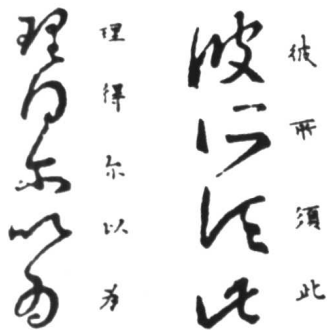 彼所須此
彼所須此
理得尔以為
理得尔以為